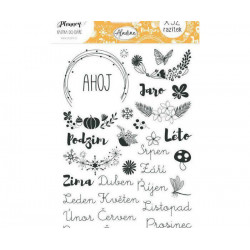 Planner
x32
razítek
AHOJ
Jaro
Podzim
Léto
Srpen
Září
Zima Duben Říjen
Leden Květen
Listopad
Únor Červen
Prosinec